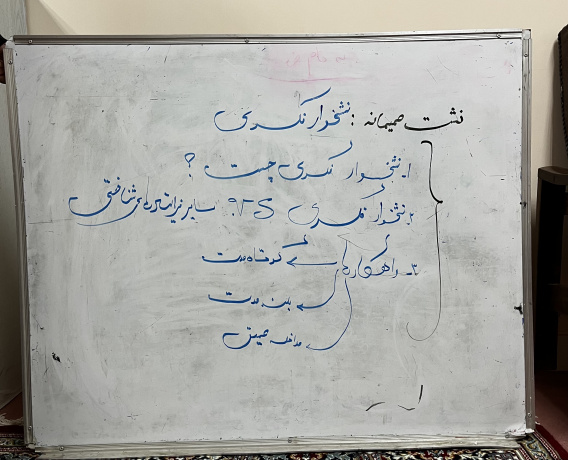 نشست صمیمانه : نشخوار فکری
۱. نشخوار فکری چیست ؟
۲. نشخوار فکری VS سایر فرایندهای شناختی
۳- راهکارها
کوتاه مدت
بلند مدت
مداخله عمیق